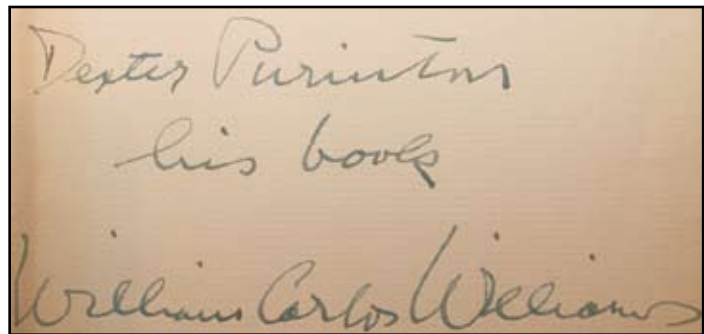 Dexter Purinton
his book
William Carlos Williams